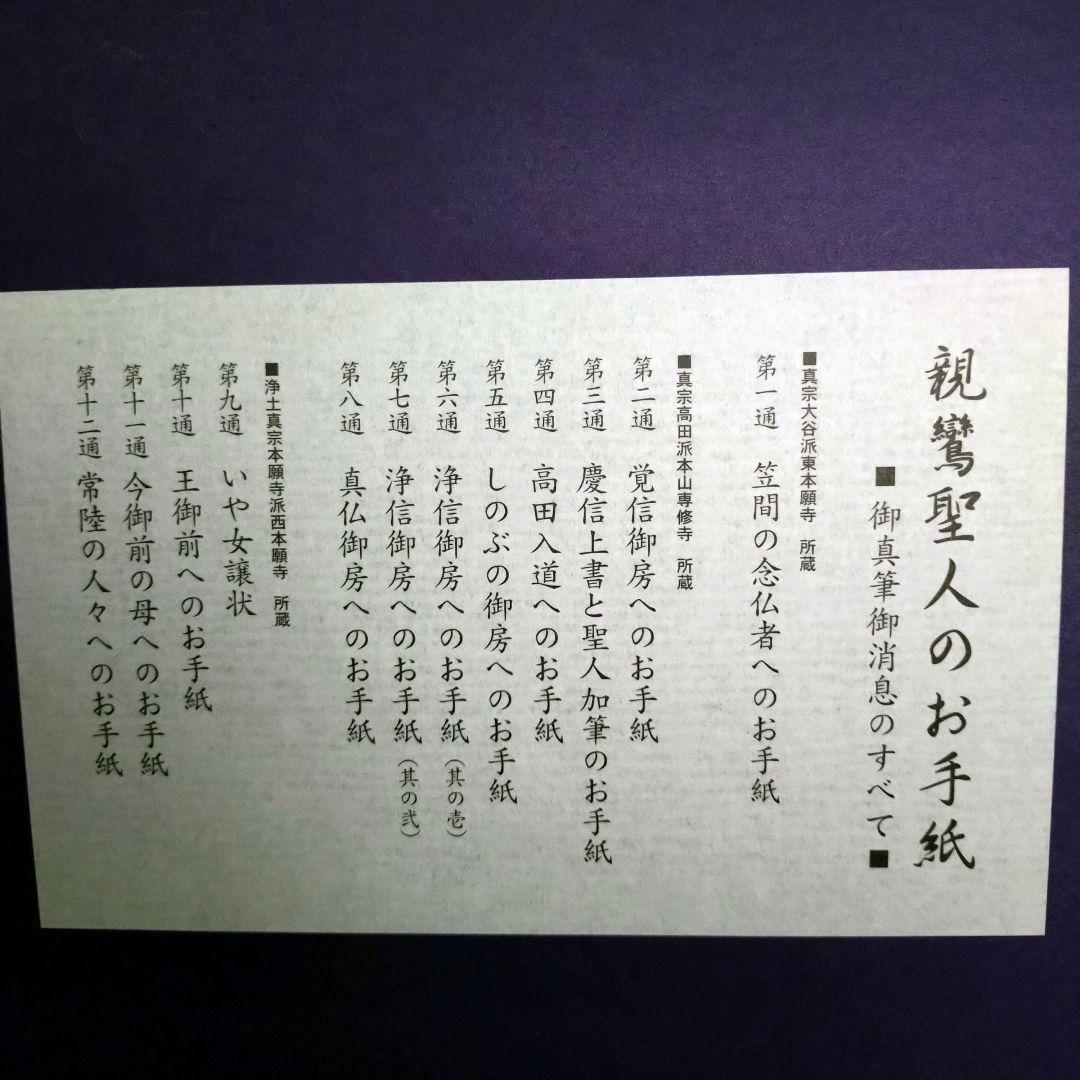 親鸞聖人のお手紙
■御真筆御消息のすべて■
■真宗大谷派東本願寺　所蔵
第一通　笠間の念仏者へのお手紙
■真宗高田派本山専修寺　所蔵
第二通　覚信御房へのお手紙
第三通　慶信上書と聖人加筆のお手紙
第四通　高田入道へのお手紙
第五通　しのぶの御房へのお手紙
第六通　浄信御房へのお手紙（其の壱）
第七通　浄信御房へのお手紙（其の弐）
第八通　真仏御房へのお手紙
■浄土真宗本願寺派西本願寺　所蔵
第九通　いや女譲状
第十通　王御前へのお手紙
第十一通　今御前の母へのお手紙
第十二通　常陸の人々へのお手紙